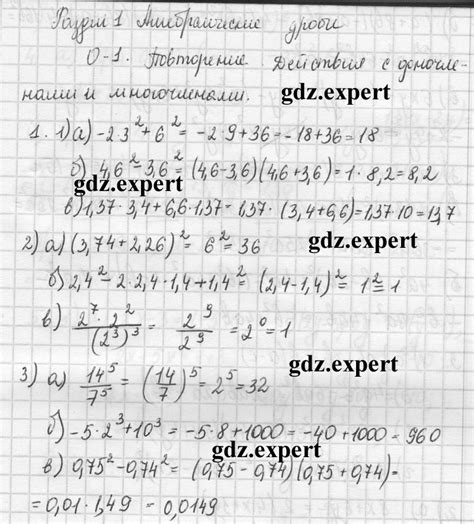 Раздел 1 Алгебраические дроби
О-1. Повторение. Действия с одночле-
нами и многочленами.
gdz.expert
1. 1) а) -2·3² + 6² = -2·9+36 = -18+36 = 18
б) 4,6² - 3,6² = (4,6-3,6)(4,6+3,6) = 1·8,2 = 8,2
gdz.expert
в) 1,37·3,4+6,6·1,37 = 1,37·(3,4+6,6) = 1,37·10 = 13,7
2) а) (3,74+2,26)² = 6² = 36
gdz.expert
б) 2,4² - 2·2,4·1,4+1,4² = (2,4-1,4)² = 1² = 1
в) 2⁷·2²/(2³)³ = 2⁹/2⁹ = 2⁰ = 1
gdz.expert
3) а) 14⁵/7⁵ = (14/7)⁵ = 2⁵ = 32
б) -5·2³+10³ = -5·8+1000 = -40+1000 = 960
gdz.expert
в) 0,75² - 0,74² = (0,75-0,74)(0,75+0,74) =
= 0,01·1,49 = 0,0149